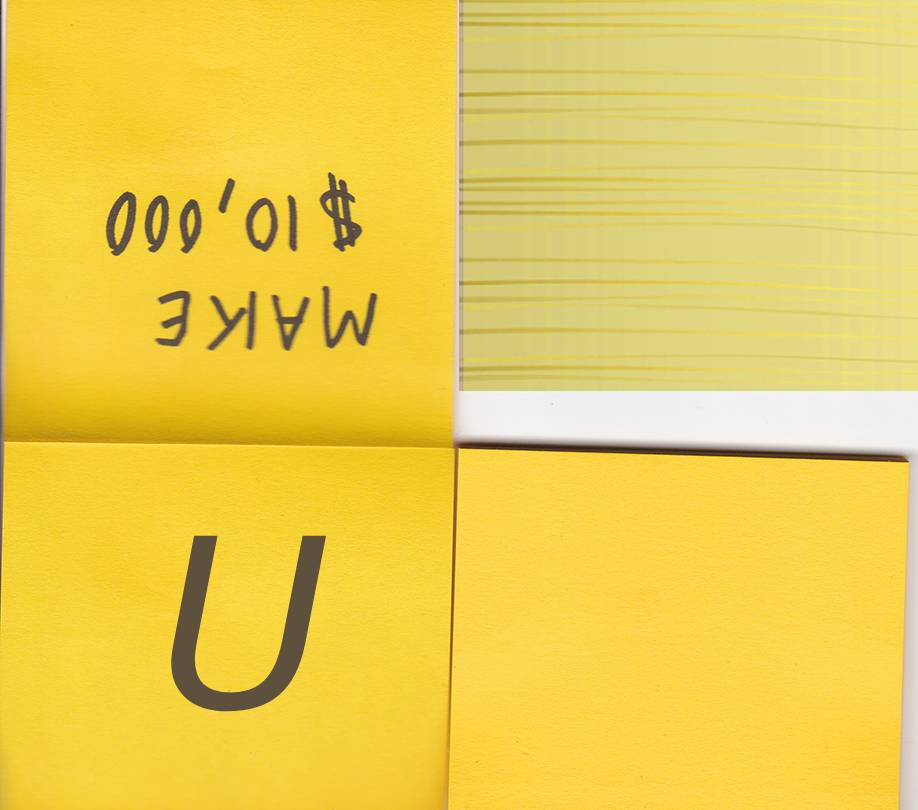 MAKE
$10,000
U